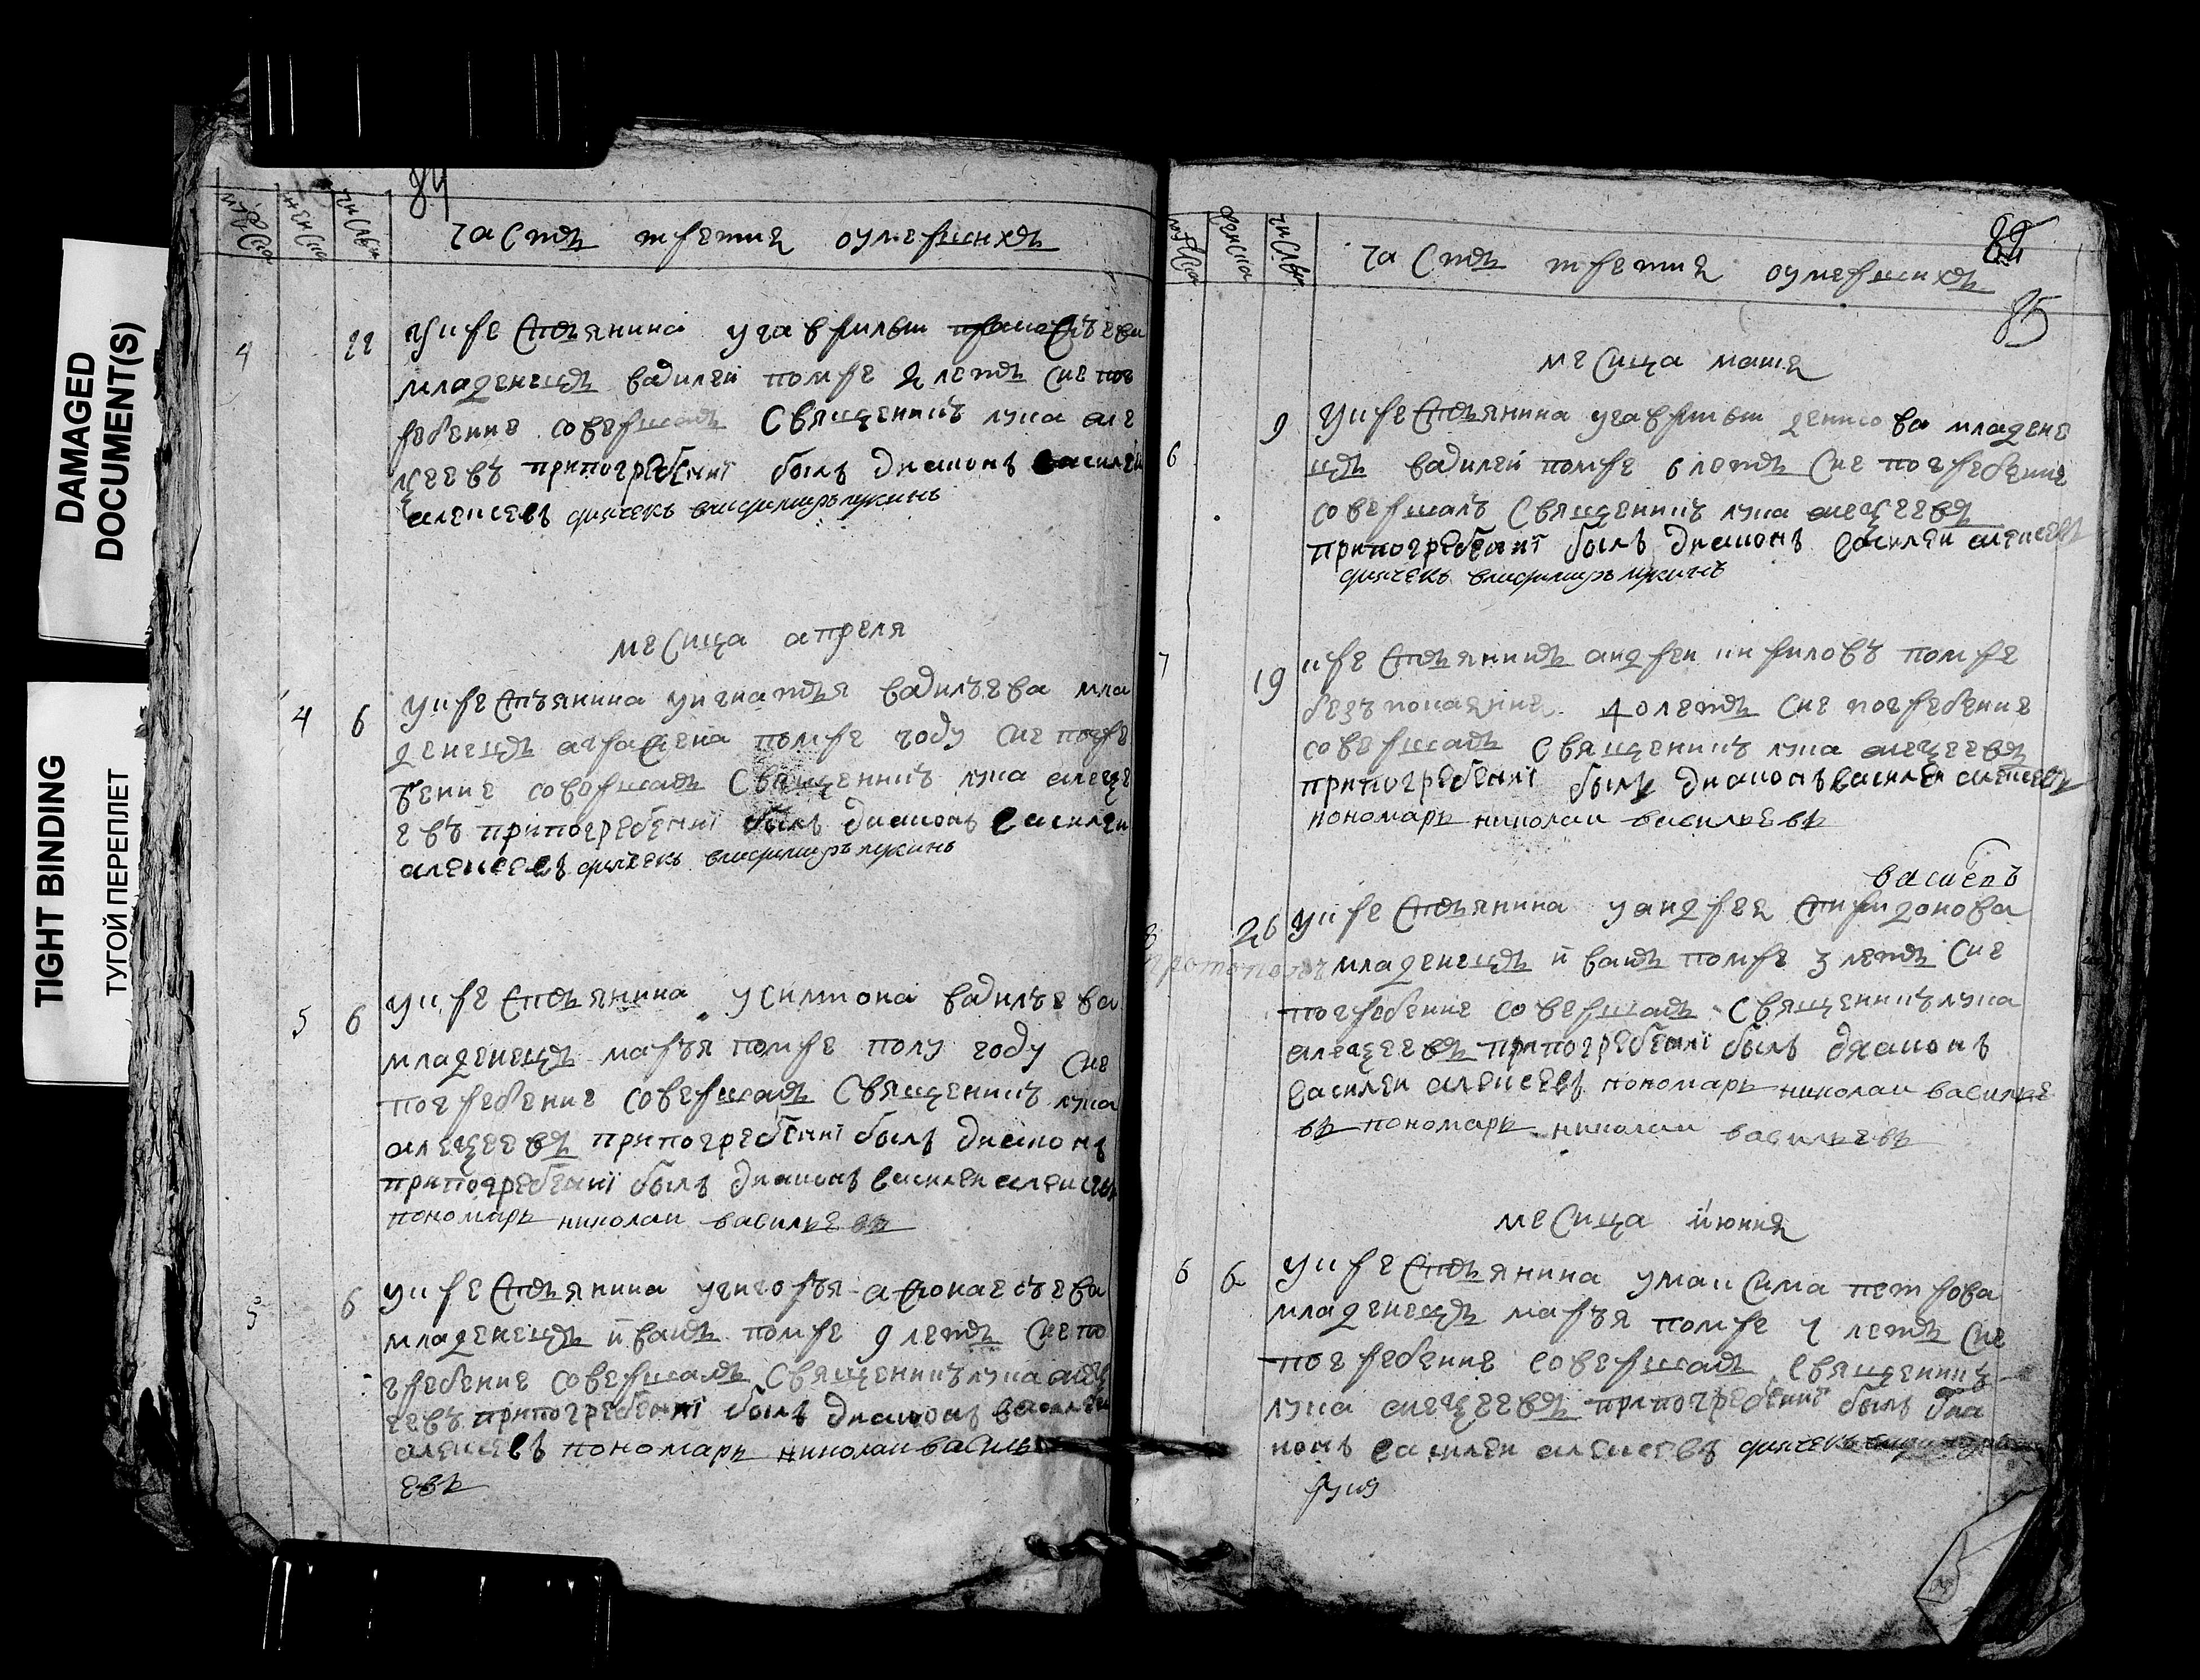 DAMAGED
DOCUMENT(S)
TIGHT BINDING
ТУГОЙ ПЕРЕПЛЕТ
84
мѣсеца
женска
числы
часть третия оумершихъ
4 22 укрестьянина угаврилы
младенецъ вадилей помре 2 летъ сие пог
ребение совершалъ священникъ лука але
ксеевъ припогребениї былъ диаконъ василеи
алексеевъ дьячекъ владимиръ лукинъ
месица апреля
4 6 укрестьянина уигнатья вадилъева мла
денецъ аграфена помре году сие погре
бение совершалъ священникъ лука алеѯе
евъ припогребениї былъ диаконъ василеи
алексеевъ дьячекъ владимиръ лукинъ
5 6 укрестьянина усимиона вадилъева
младенецъ маръя помре полу году сие
погребение совершалъ священникъ лука
алеѯеевъ припогребениї былъ диаконъ
припогребениї былъ диаконъ василеи алексеевъ
пономарь николаи васильевъ
5 6 укрестьянина угигоръя афонасъева
младенецъ иванъ помре 9 летъ сие по
гребение совершалъ священникъ лука алеѯ
еевъ припогребениї былъ диаконъ василеи
алексеевъ пономарь николаи василь
евъ
85
85
мѣсеца
женска
числы
часть третия оумершихъ
месица маия
6 9 укрестьянина угаврилы денисова младене
цъ вадилей помре 6 летъ сие погребение
совершалъ священникъ лука алеѯеевъ
припогребениї былъ диаконъ василеи алексеевъ
дьячекъ владимиръ лукинъ
7 19 крестьянинъ андреи кириловъ помре
безъ покаяние 40 летъ сие погребение
совершалъ священникъ лука алеѯеевъ
припогребениї былъ диаконъ василеи алексеевъ
пономарь николаи васильевъ
8 26 укрестьянина уандрея спиридонова
протопопъ младенецъ иванъ помре 3 летъ сие
погребение совершалъ священникъ лука
алеѯеевъ припогребениї былъ диаконъ
василеи алексеевъ пономарь николаи василье
въ пономарь николаи васильевъ
месица июния
6 6 укрестьянина умаксима петрова
младенецъ маръя помре 4 летъ сие
погребение совершалъ священникъ
лука алеѯеевъ припогребениї былъ диа
конъ василеи алексеевъ дьячекъ
руку